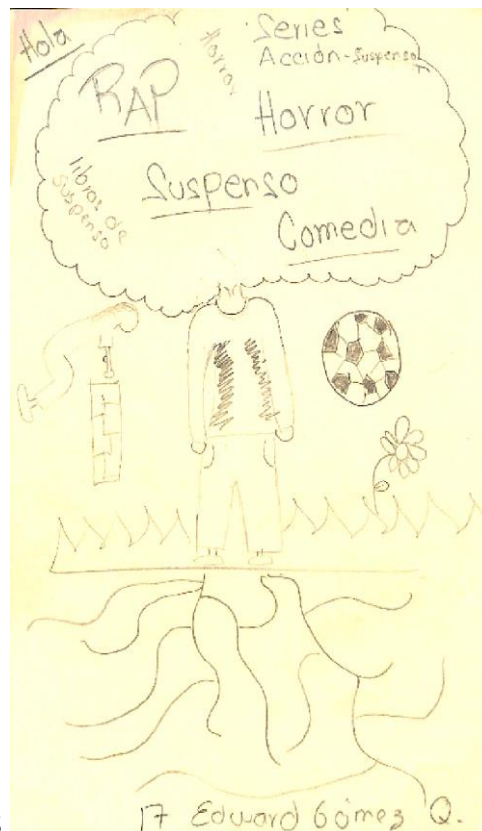 Hola
Series
Acción-Suspenso
Horror
RAP
Horror
Suspenso
libros de
suspenso
Comedia
17 Edward Gómez Q.